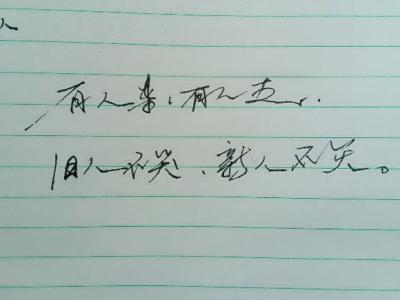 有人来,有人去,
旧人不哭、新人不笑。